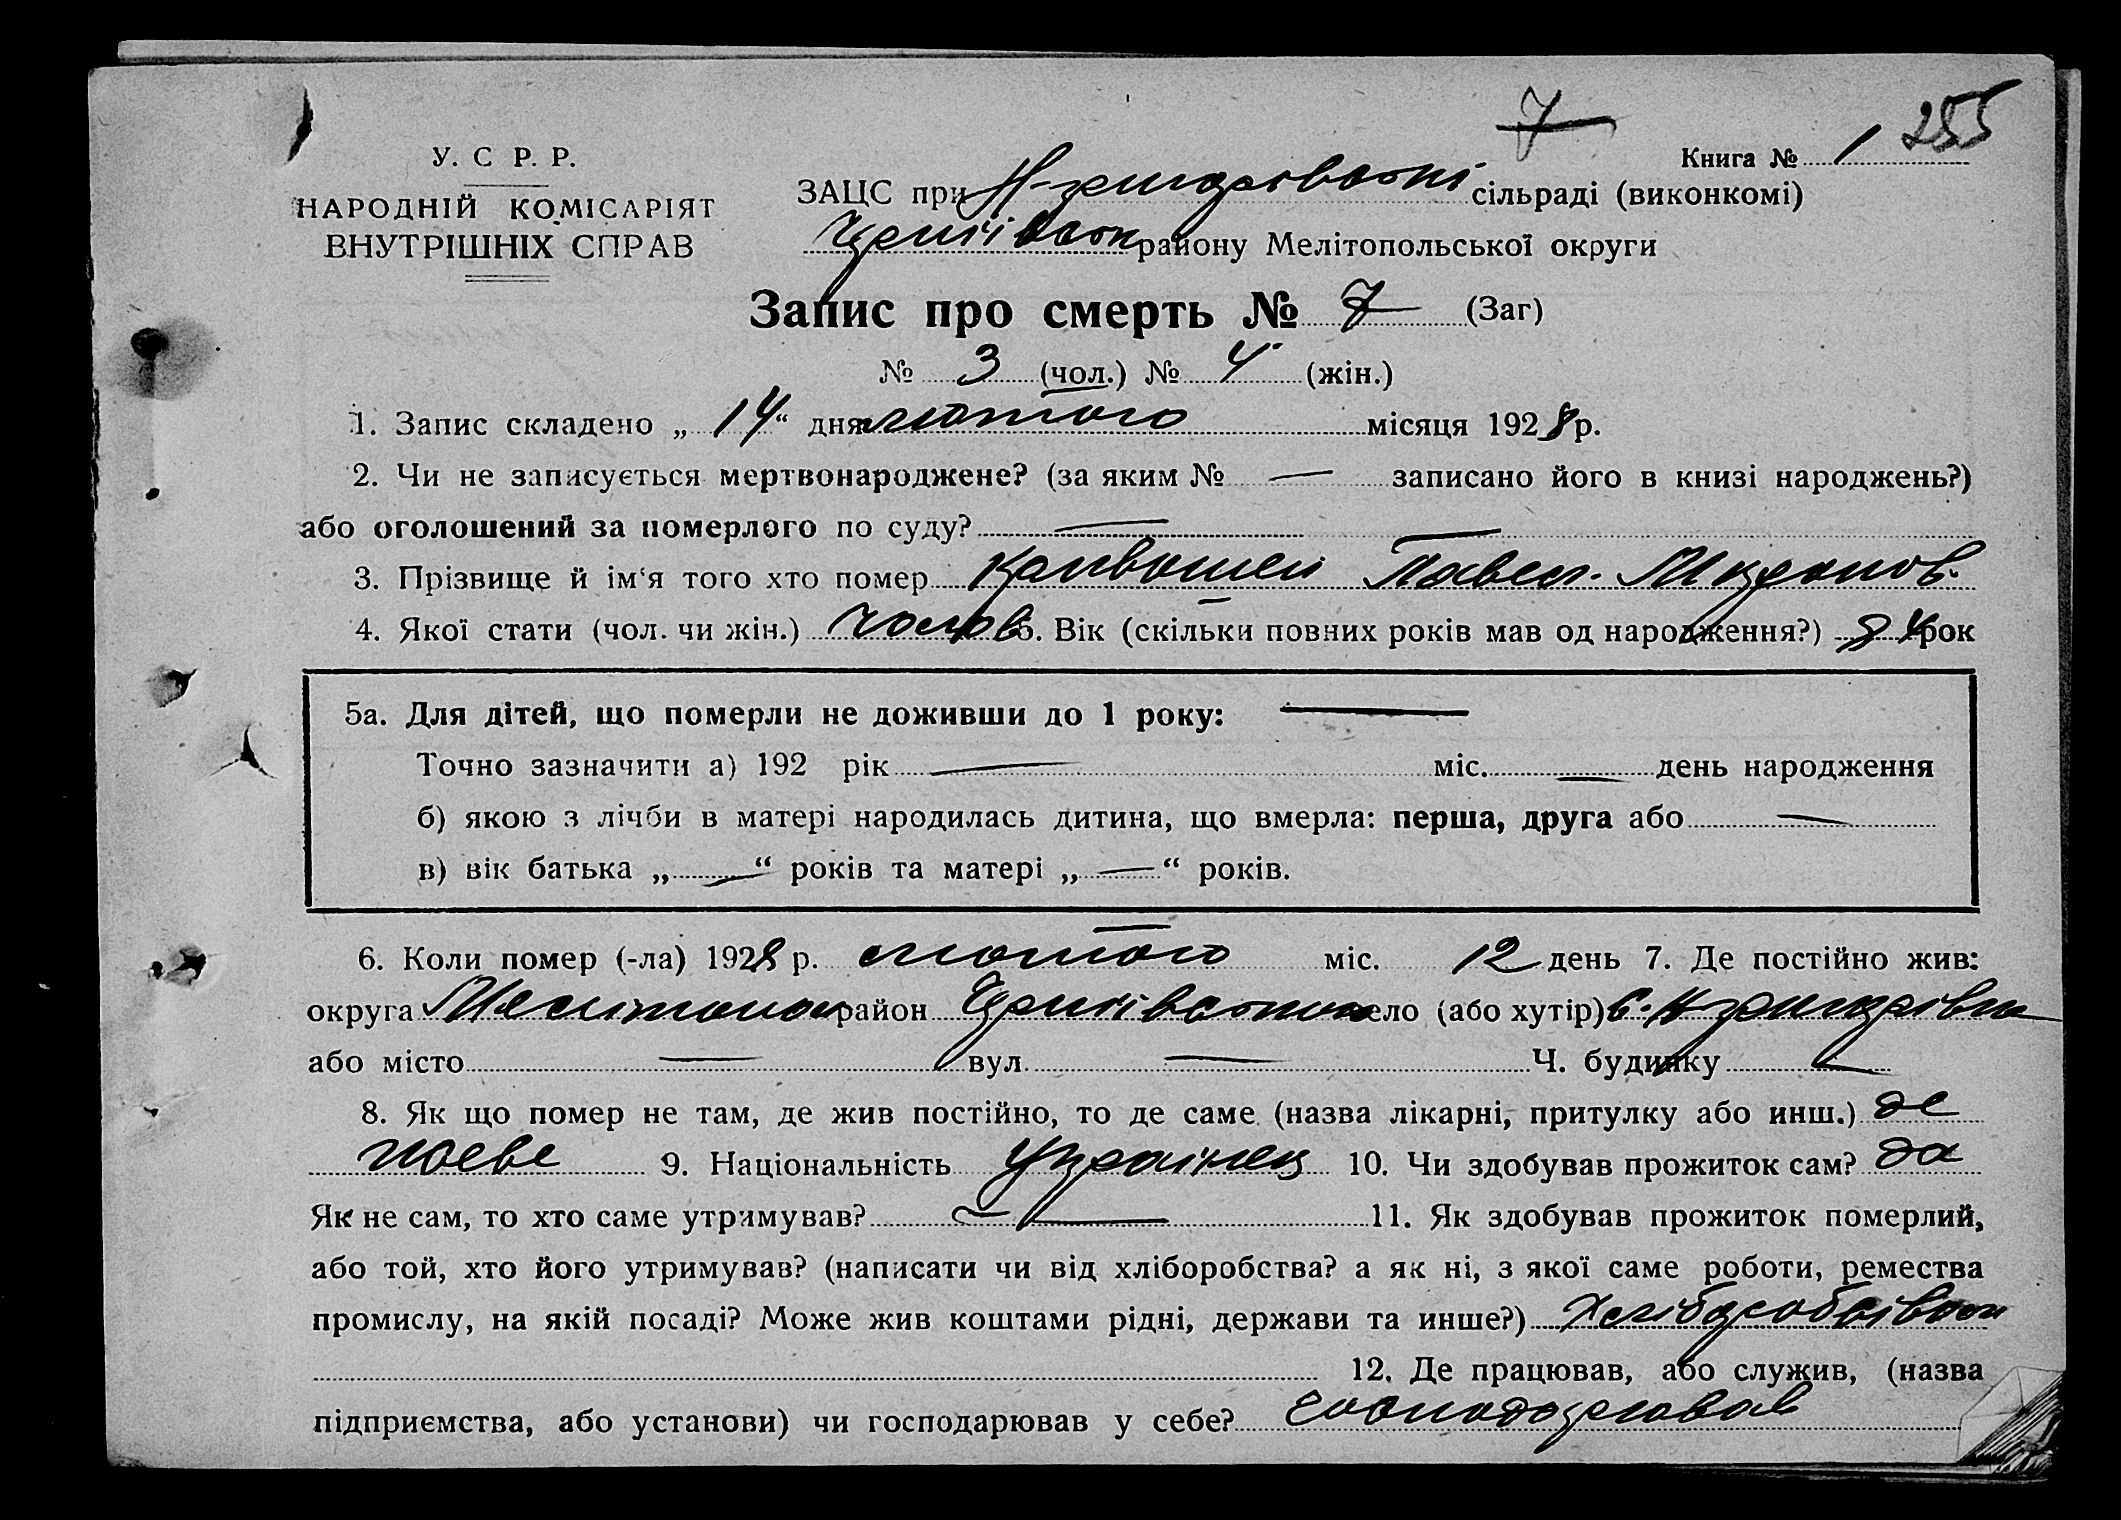 7
255
У. С Р. Р.
НАРОДНІЙ КОМІСАРІЯТ
ВНУТРІШНІХ СПРАВ
Книга № 1
ЗАЦС при сільраді (виконкомі)
району Мелітопольської округи
Запис про смерть № 7 (Заг)
№ 3 (чол.) № 4 (жін.)
1. Запис складено „ 14 “ дня лютого місяця 1928 р.
2. Чи не записується мертвонароджене? (за яким № — записано його в книзі народжень?)
або оголошений за померлого по суду? —
3. Прізвище й ім‘я того хто помер Павел
4. Якої стати (чол. чи жін.) Чолов 5. Вік (скільки повних років мав од народження?) 84 рок
5а. Для дітей, що померли не доживши до 1 року: —
Точно зазначити а) 192 рік — міс. — день народження
б) якою з лічби в матері народилась дитина, що вмерла: перша, друга або —
в) вік батька „ — “ років та матері „ — “ років.
6. Коли помер (-ла) 1928 р. лютого міс. 12 день 7. Де постійно жив:
округа Мелітопол район село (або хутір)
або місто — вул. — Ч. будинку —
8. Як що помер не там, де жив постійно, то де саме (назва лікарні, притулку або инш.) де
9. Національність Українец 10. Чи здобував прожиток сам? да
Як не сам, то хто саме утримував? — 11. Як здобував прожиток померлий,
або той, хто його утримував? (написати чи від хліборобства? а як ні, з якої саме роботи, ремества
промислу, на якій посаді? Може жив коштами рідні, держави та инше?)
12. Де працював, або служив, (назва
підприємства, або установи) чи господарював у себе? господарював